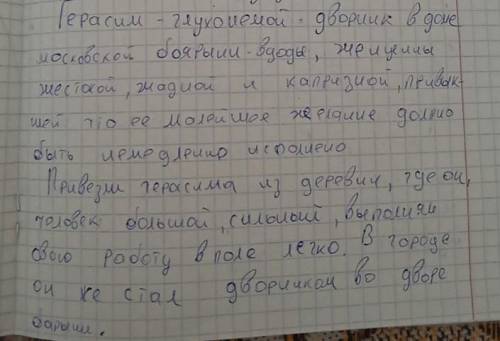 Герасим - глухонемой - дворник в доме
московской боярыни-вдовы, женщины
жестокой, жадной и капризной, привык-
шей что ее малейшое желание должно
быть немедленно исполнено
Привезли герасима из деревни, где он,
человек большой, сильный, выполнял
свою работу в поле легко. В городе
он же стал дворником во дворе
барыни.